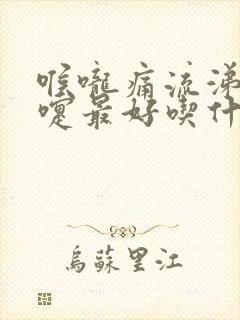 喉嚨痛流涕
嚏最好喫什
烏蘇里江